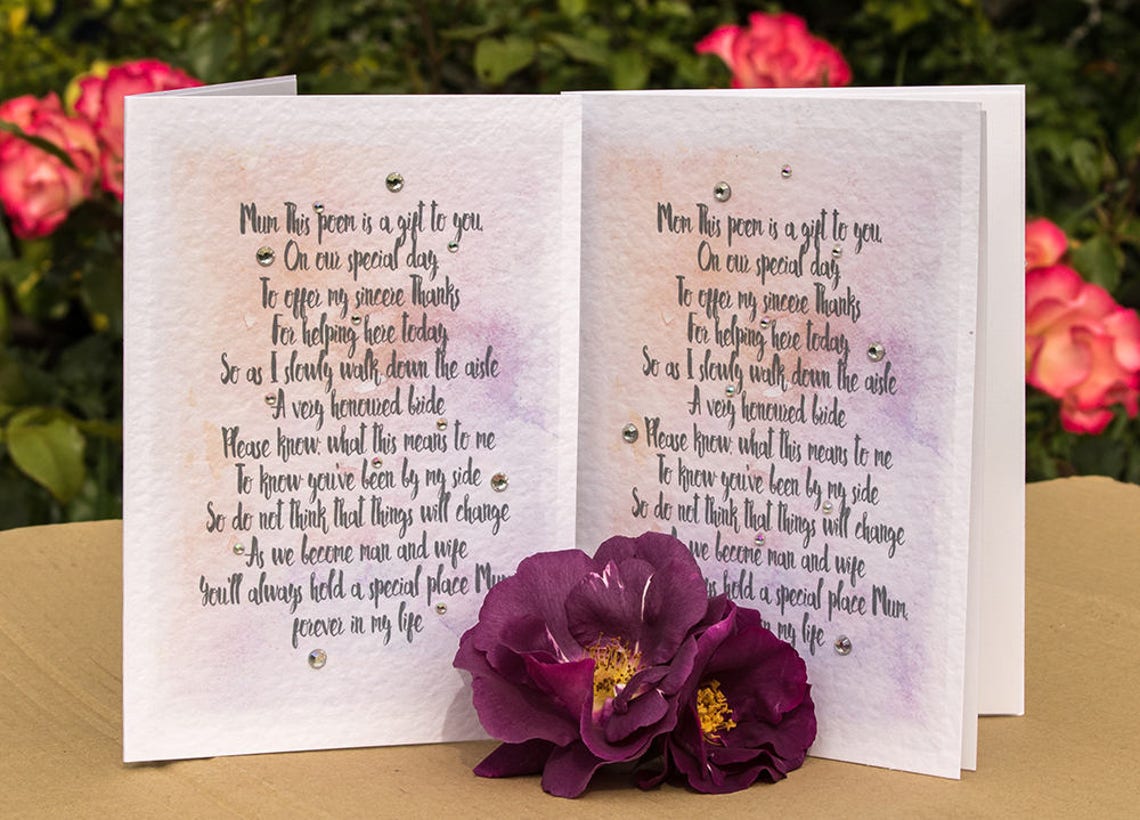 Mum This poem is a gift to you,
On our special day
To offer my sincere Thanks
For helping here today
So as I slowly walk down the aisle
A very honoured bride
Please know: what this means to me
To know you've been by my side
So do not think that things will change
As we become man and wife
You'll always hold a special place Mum,
forever in my life
Mom This poem is a gift to you,
On our special day
To offer my sincere Thanks
For helping here today
So as I slowly walk down the aisle
A very honoured bride
Please know: what this means to me
To know you've been by my side
So do not think that things will change
we become man and wife
hold a special place Mum,
my life